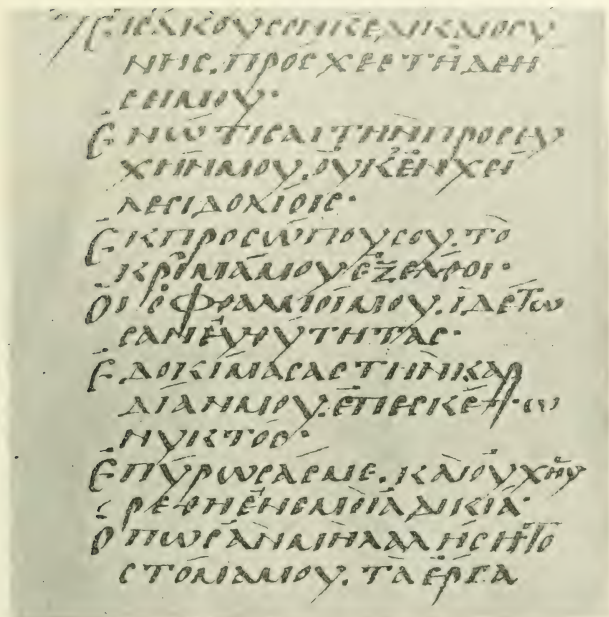 ΕΙCΑΚΟΥCΟΝΚΕΔΙΚΑΙΟCΥ
ΝΗC. ΠΡΟCΧΕCΤΗΔΕΗ
CΕΙΜΟΥ·
ΕΝΩΤΙCΑΙΤΗΝΠΡΟCΕΥ
ΧΗΝΜΟΥ. ΟΥΚΕΝΧΕΙ
ΛΕCΙΔΟΛΙΟΙC·
ΕΚΠΡΟCΩΠΟΥCΟΥ. ΤΟ
ΚΡΙΜΑΜΟΥΕΞΕΛΘΟΙ·
ΟΙΟΦΘΑΛΜΟΙΜΟΥ. ΙΔΕΤω
CΑΝΕΥΘΥΤΗΤΑC·
ΕΔΟΚΙΜΑCΑCΤΗΝΚΑΡ
ΔΙΑΝΜΟΥ. ΕΠΕCΚΕΨω
ΝΥΚΤΟC·
ΕΠΥΡΩCΑCΜΕ. ΚΑΙΟΥΧΗΥ
ΡΕΘΗΕΝΕΜΟΙΑΔΙΚΙΑ·
ΟΠΩCΑΝΜΗΛΑΛΗCΗΤΟ
CΤΟΜΑΜΟΥ. ΤΑΕΡΓΑ